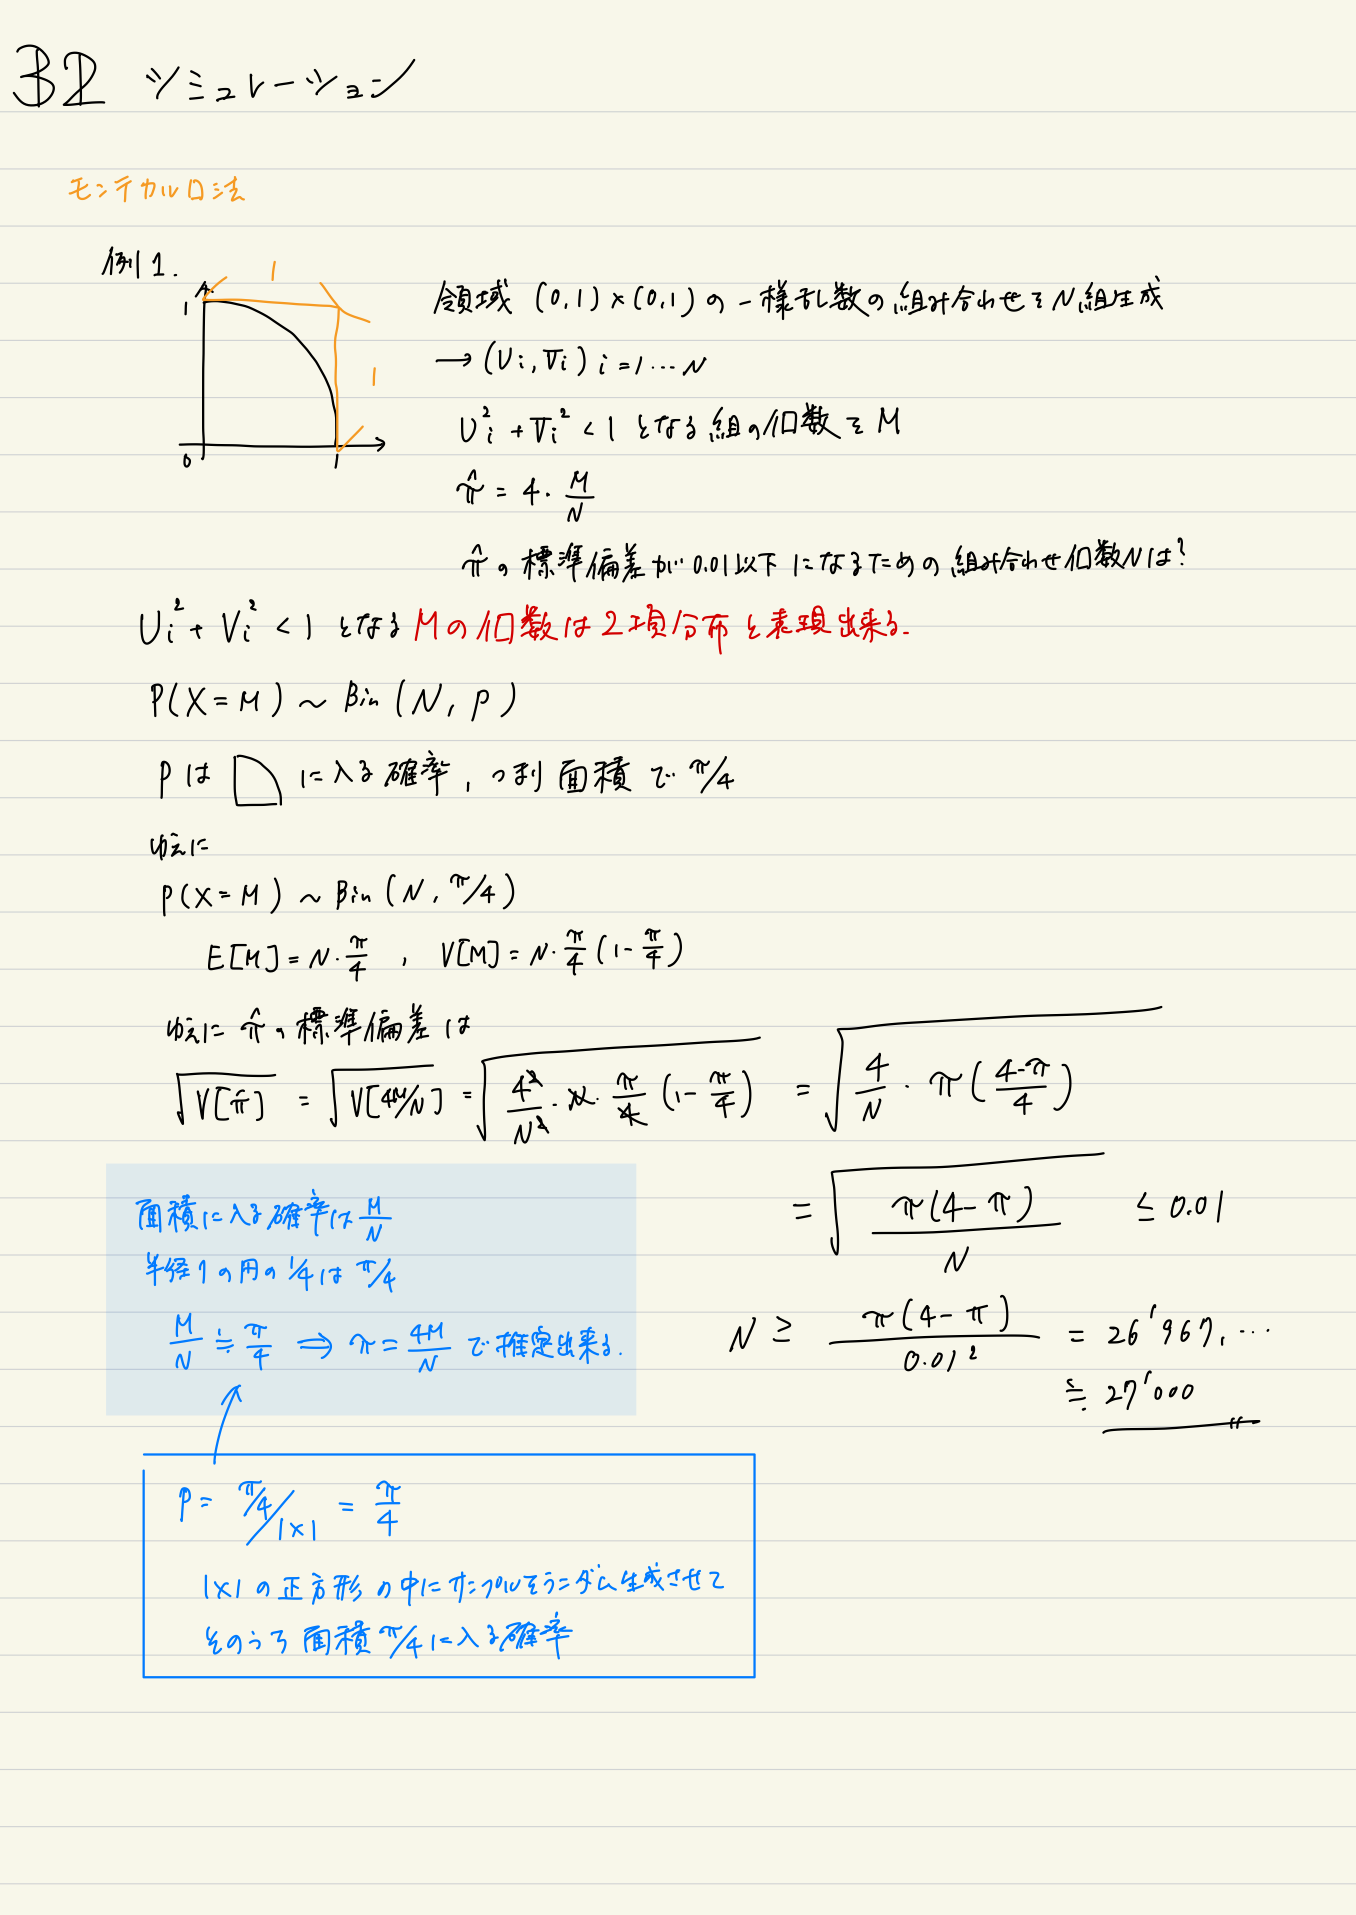 32 シミュレーション
モンテカルロ法
例1.
1
1
1
0
1
領域 (0,1)×(0,1) の一様乱数の組み合わせをN組生成
→ (Ui, Vi) i=1…N
Ui² + Vi² < 1 となる組の個数をM
π̂ = 4・M/N
π̂の標準偏差が0.01以下になるための組み合わせ個数Nは?
Ui² + Vi² < 1 となるMの個数は2項分布と表現出来る.
P(X=M) ~ Bin(N, p)
Pは に入る確率, つまり面積でπ/4
ゆえに
P(X=M) ~ Bin(N, π/4)
E[M] = N・π/4 , V[M] = N・π/4(1-π/4)
ゆえにπ̂の標準偏差は
√V[π̂] = √V[4M/N] = √4²/N²・N・π/4(1-π/4) = √4/N・π(4-π/4)
= √π(4-π)/N ≤ 0.01
N ≥ π(4-π)/0.01² = 26'967,…
≒ 27'000
面積に入る確率はM/N
半径1の円の1/4はπ/4
M/N ≒ π/4 ⇒ π = 4M/N で推定出来る.
P = π/4/1×1 = π/4
1×1の正方形の中にサンプルをランダム生成させて
そのうち面積π/4に入る確率